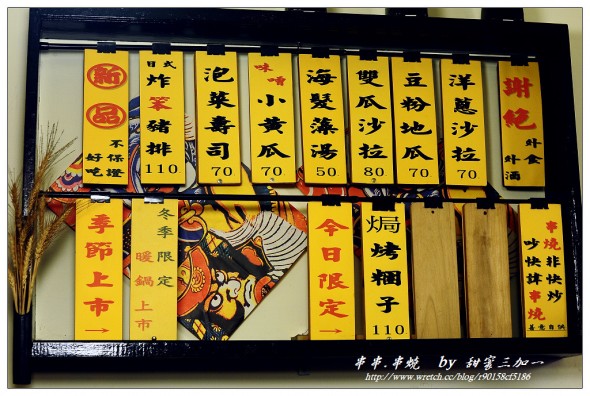 新品
不保證
好吃
日式
炸笨豬排
110
泡菜壽司
70
味噌
小黃瓜
70
海髮藻湯
50
雙瓜沙拉
80
豆粉地瓜
70
洋蔥沙拉
70
謝絕
外食
外酒
季節上市
→
冬季限定
暖鍋上市
今日限定
→
焗烤糰子
110
串燒非快炒
吵快譁串燒
串串.串燒 by 甜蜜三加一
http://www.wretch.cc/blog/r90158cf5186